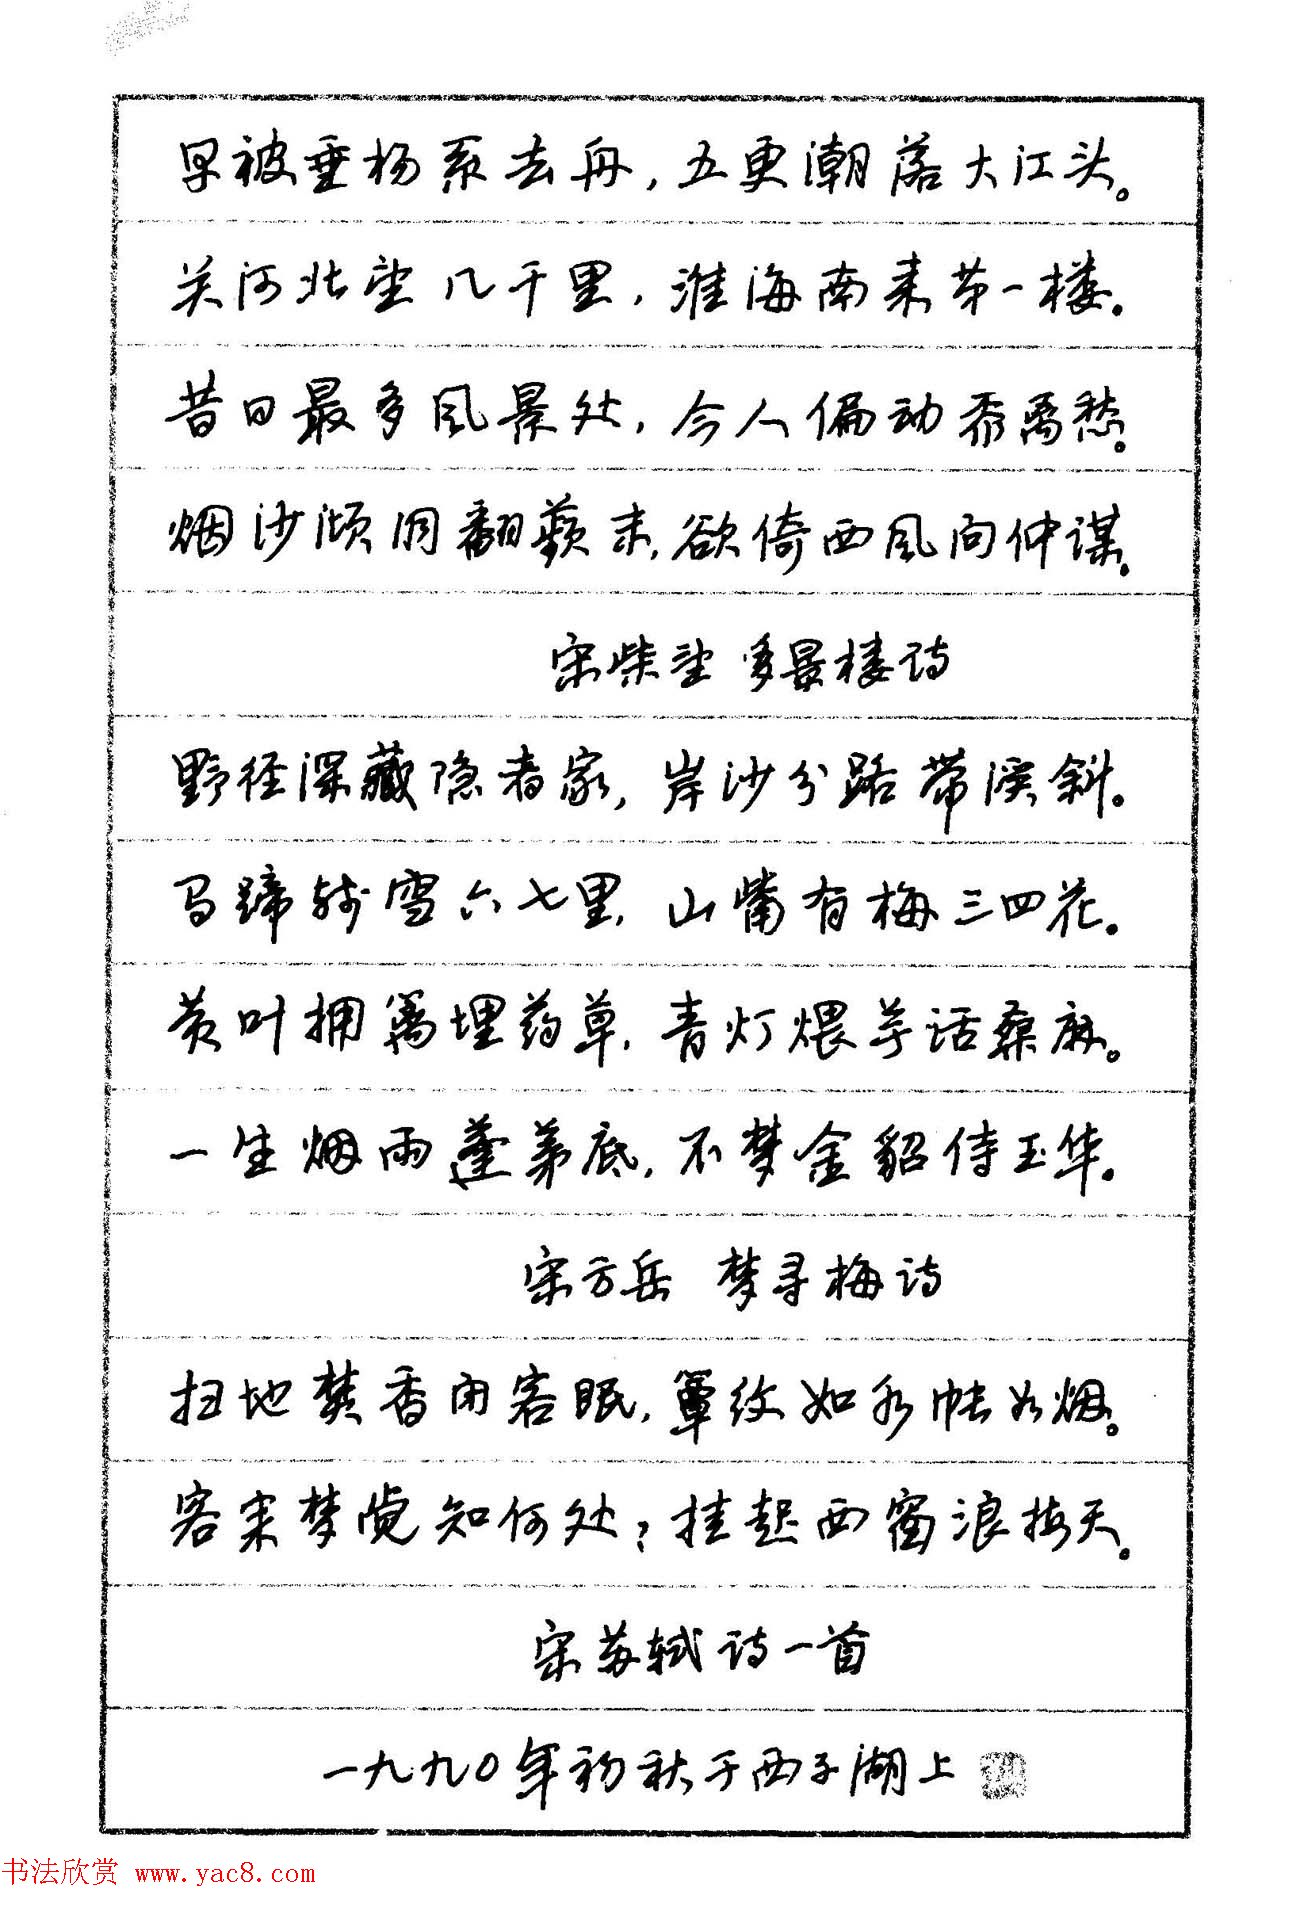 早被垂杨系去舟，五更潮落大江头。
关河北望几千里，淮海南来第一楼。
昔日最多风景处，今人偏动黍离愁。
烟沙澒洞翻蘋末，欲倚西风问仲谋。
宋柴望 多景楼诗
野径深藏隐者家，岸沙分路带溪斜。
马蹄残雪六七里，山嘴有梅三四花。
黄叶拥篱埋药草，青灯煨芋话桑麻。
一生烟雨蓬茅底，不梦金貂侍玉华。
宋方岳 梦寻梅诗
扫地焚香闭客眠，簟纹如水帐如烟。
客来梦觉知何处？挂起西窗浪接天。
宋苏轼诗一首
一九九〇年初秋于西子湖上
书法欣赏 www.yac8.com